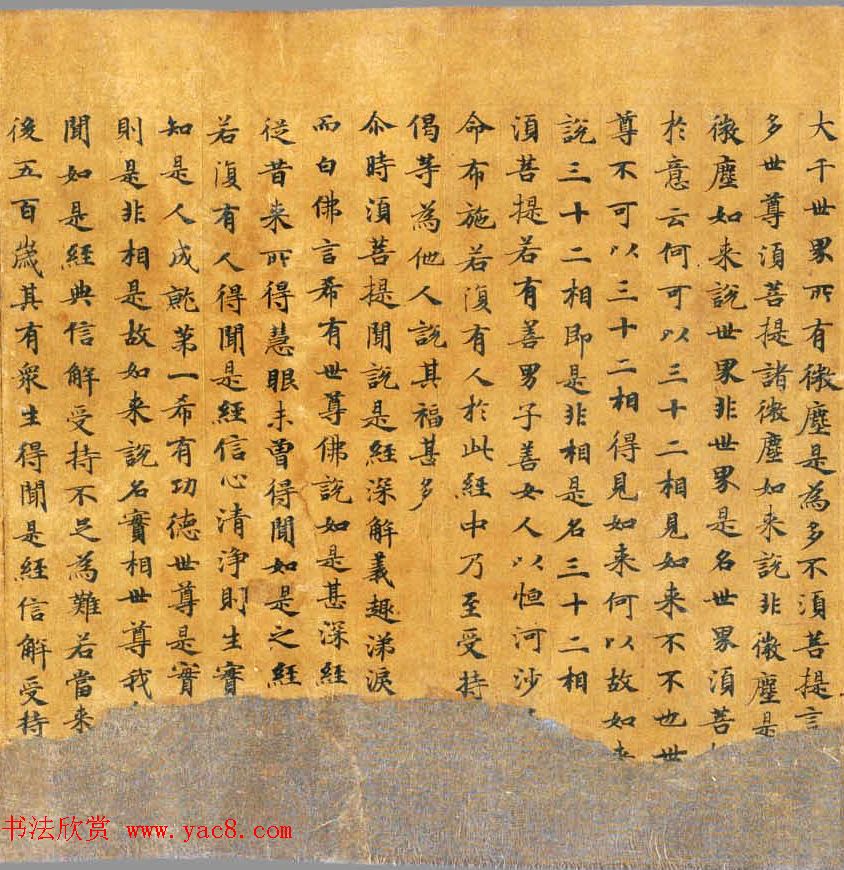 大千世界所有微塵是為多不須菩提言
多世尊須菩提諸微塵如来說非微塵是
微塵如来說世界非世界是名世界須菩
於意云何可以三十二相見如来不不也世
尊不可以三十二相得見如来何以故如来
說三十二相即是非相是名三十二相
須菩提若有善男子善女人以恒河沙
命布施若復有人於此經中乃至受持
偈等為他人說其福甚多
尒時須菩提聞說是經深解義趣涕淚
而白佛言希有世尊佛說如是甚深經
從昔来所得慧眼未曽得聞如是之經
若復有人得聞是經信心清淨則生實
知是人成就第一希有功德世尊是實
則是非相是故如来說名實相世尊我
聞如是經典信解受持不足為難若當来
後五百歲其有眾生得聞是經信解受持
书法欣赏 www.yac8.com